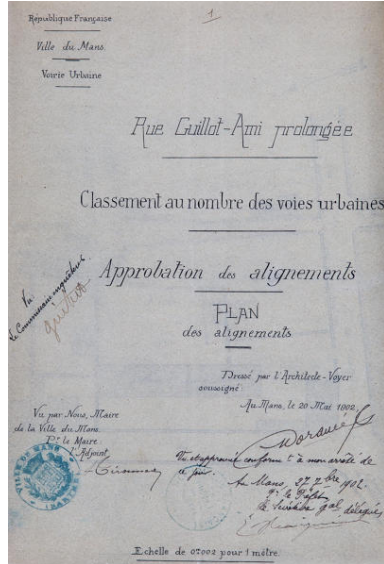 1
République Française
Ville du Mans
Voirie Urbaine
Rue Guillot-Ami prolongée
Classement au nombre des voies urbaines
Approbation des alignements
PLAN
des alignements
Vu
Le Commissaire enquêteur
Dressé par l'Architecte-Voyer
soussigné
Au Mans, le 20 Mai 1902
Vu par Nous, Maire
de la Ville du Mans
Pr le Maire
l'Adjoint
VILLE DU MANS
Vu et approuvé conformt à mon arrêté de
ce jour.
Le Mans, 27 7bre 1902.
Pr le Préfet
Le Secrétaire gal délégué
Echelle de 0m002 pour 1 mètre.